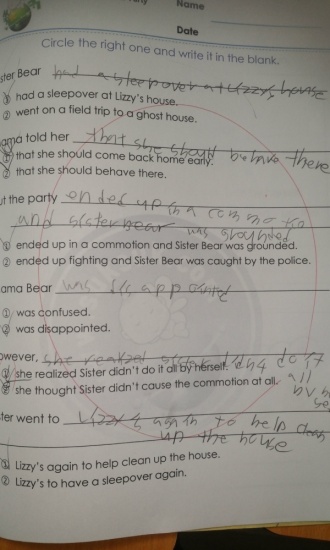 Name
Date
Circle the right one and write it in the blank.
ster Bear had a sleepover at Lizzy's house
① had a sleepover at Lizzy's house.
② went on a field trip to a ghost house.
ama told her that she should behave there
① that she should come back home early.
② that she should behave there.
ut the party ended up in a
and sister bear was grounded
① ended up in a commotion and Sister Bear was grounded.
② ended up fighting and Sister Bear was caught by the police.
ama Bear was
① was confused.
② was disappointed.
owever, she realized
① she realized Sister didn't do it all by herself.
② she thought Sister didn't cause the commotion at all.
ster went to Lizzy's again to help clean
up the house
① Lizzy's again to help clean up the house.
② Lizzy's to have a sleepover again.